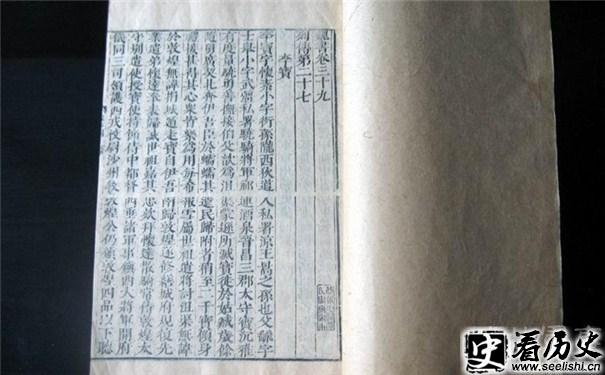 魏書卷三十九
列傳第二十七
李寶
李寶字懷素小字衍孫隴西狄道人私署涼王暠之孫也父翻字
士舉小字武彊私署驍騎將軍祁連酒泉晉昌三郡太守寶沉雅
有度量驍勇善撫接伯父歆為沮渠蒙遜所滅寶徙於姑臧歲餘
隨舅唐契北奔伊吾臣於蠕蠕其遺民歸附者稍至二千寶傾身
禮接甚得其心衆皆樂為用每希報雪屬世祖遣將討沮渠無諱
於敦煌無諱捐城遁走寶自伊吾南歸敦煌遂修繕城府規復先
業遣弟懷達奉表歸誠世祖嘉其忠款拜懷達散騎常侍敦煌太
守別遣使授寶使持節侍中都督西垂諸軍事鎮西大將軍開府
儀同三司領護西戎校尉沙州牧敦煌公仍領敦煌四品以下聽
史看历史
www.seelishi.cn